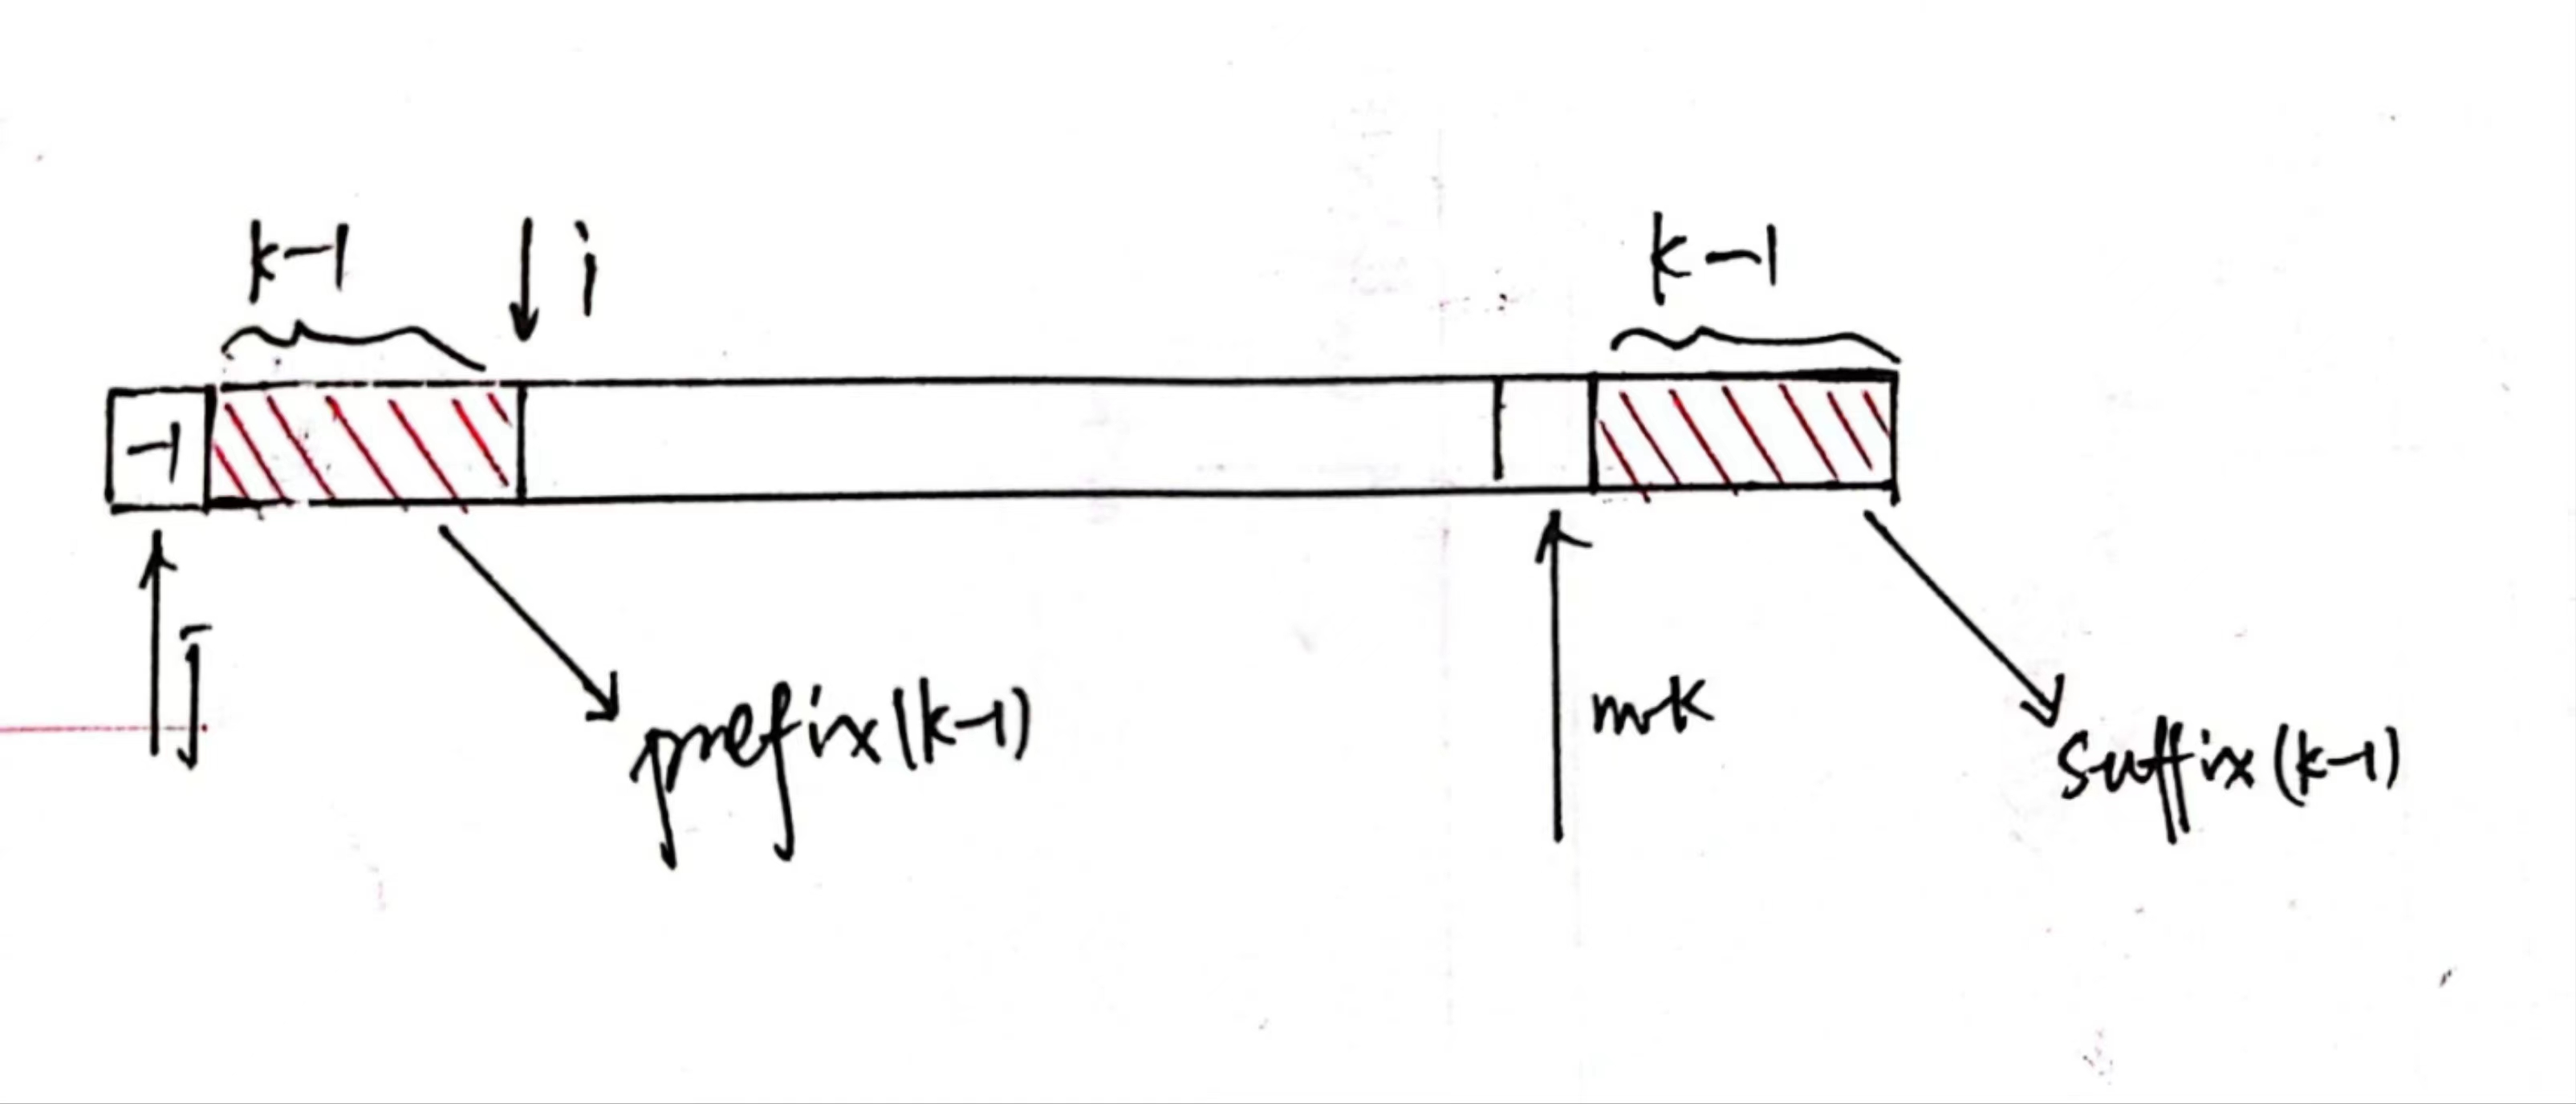 k-1
i
k-1
-1
j
m-k
prefix(k-1)
suffix(k-1)